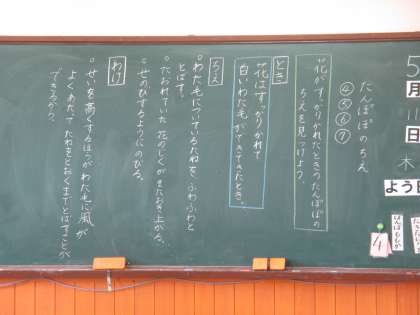 5月11日 木よう日
たんぽぽのちえ
④⑤⑥⑦
花がすっかりかれたときのたんぽぽの
ちえを見つけよう。
とき
花はすっかりかれて
白いわた毛ができてきたとき。
ちえ
○わた毛についているたねを、ふわふわと
とばす。
○たおれていた花のじくがまたおき上がる。
○せのびするようにのびる。
わけ
○せいを高くするほうがわた毛に風が
よくあたって、たねをとおくまでとばすことが
できるから。
4